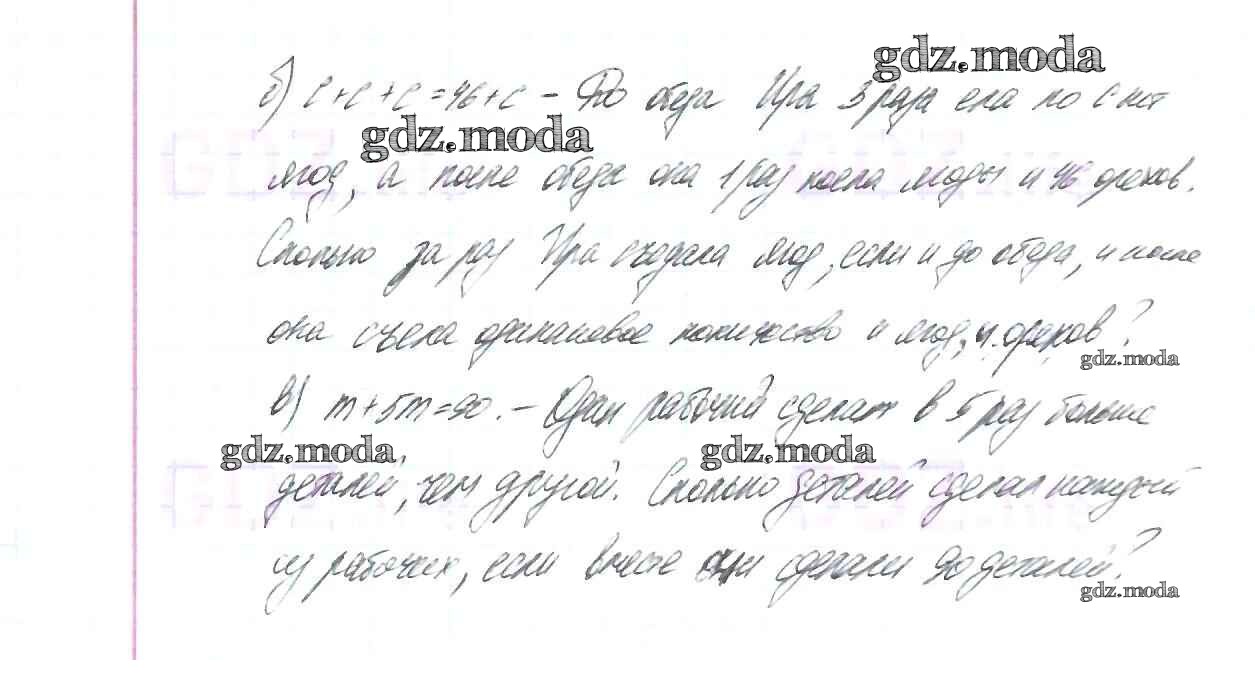 gdz.moda
б) c + c + c = 46 + c – До обеда Ира 3 раза ела по c шт
gdz.moda
ягод, а после обеда она 1 раз поела ягоды и 46 орехов.
Сколько за раз Ира съедала ягод, если и до обеда, и после
она съела одинаковое количество и ягод, и орехов?
gdz.moda
в) m + 5m = 90. – Один рабочий сделал в 5 раз больше
gdz.moda gdz.moda
деталей, чем другой. Сколько деталей сделал каждый
из рабочих, если вместе они сделали 90 деталей?
gdz.moda